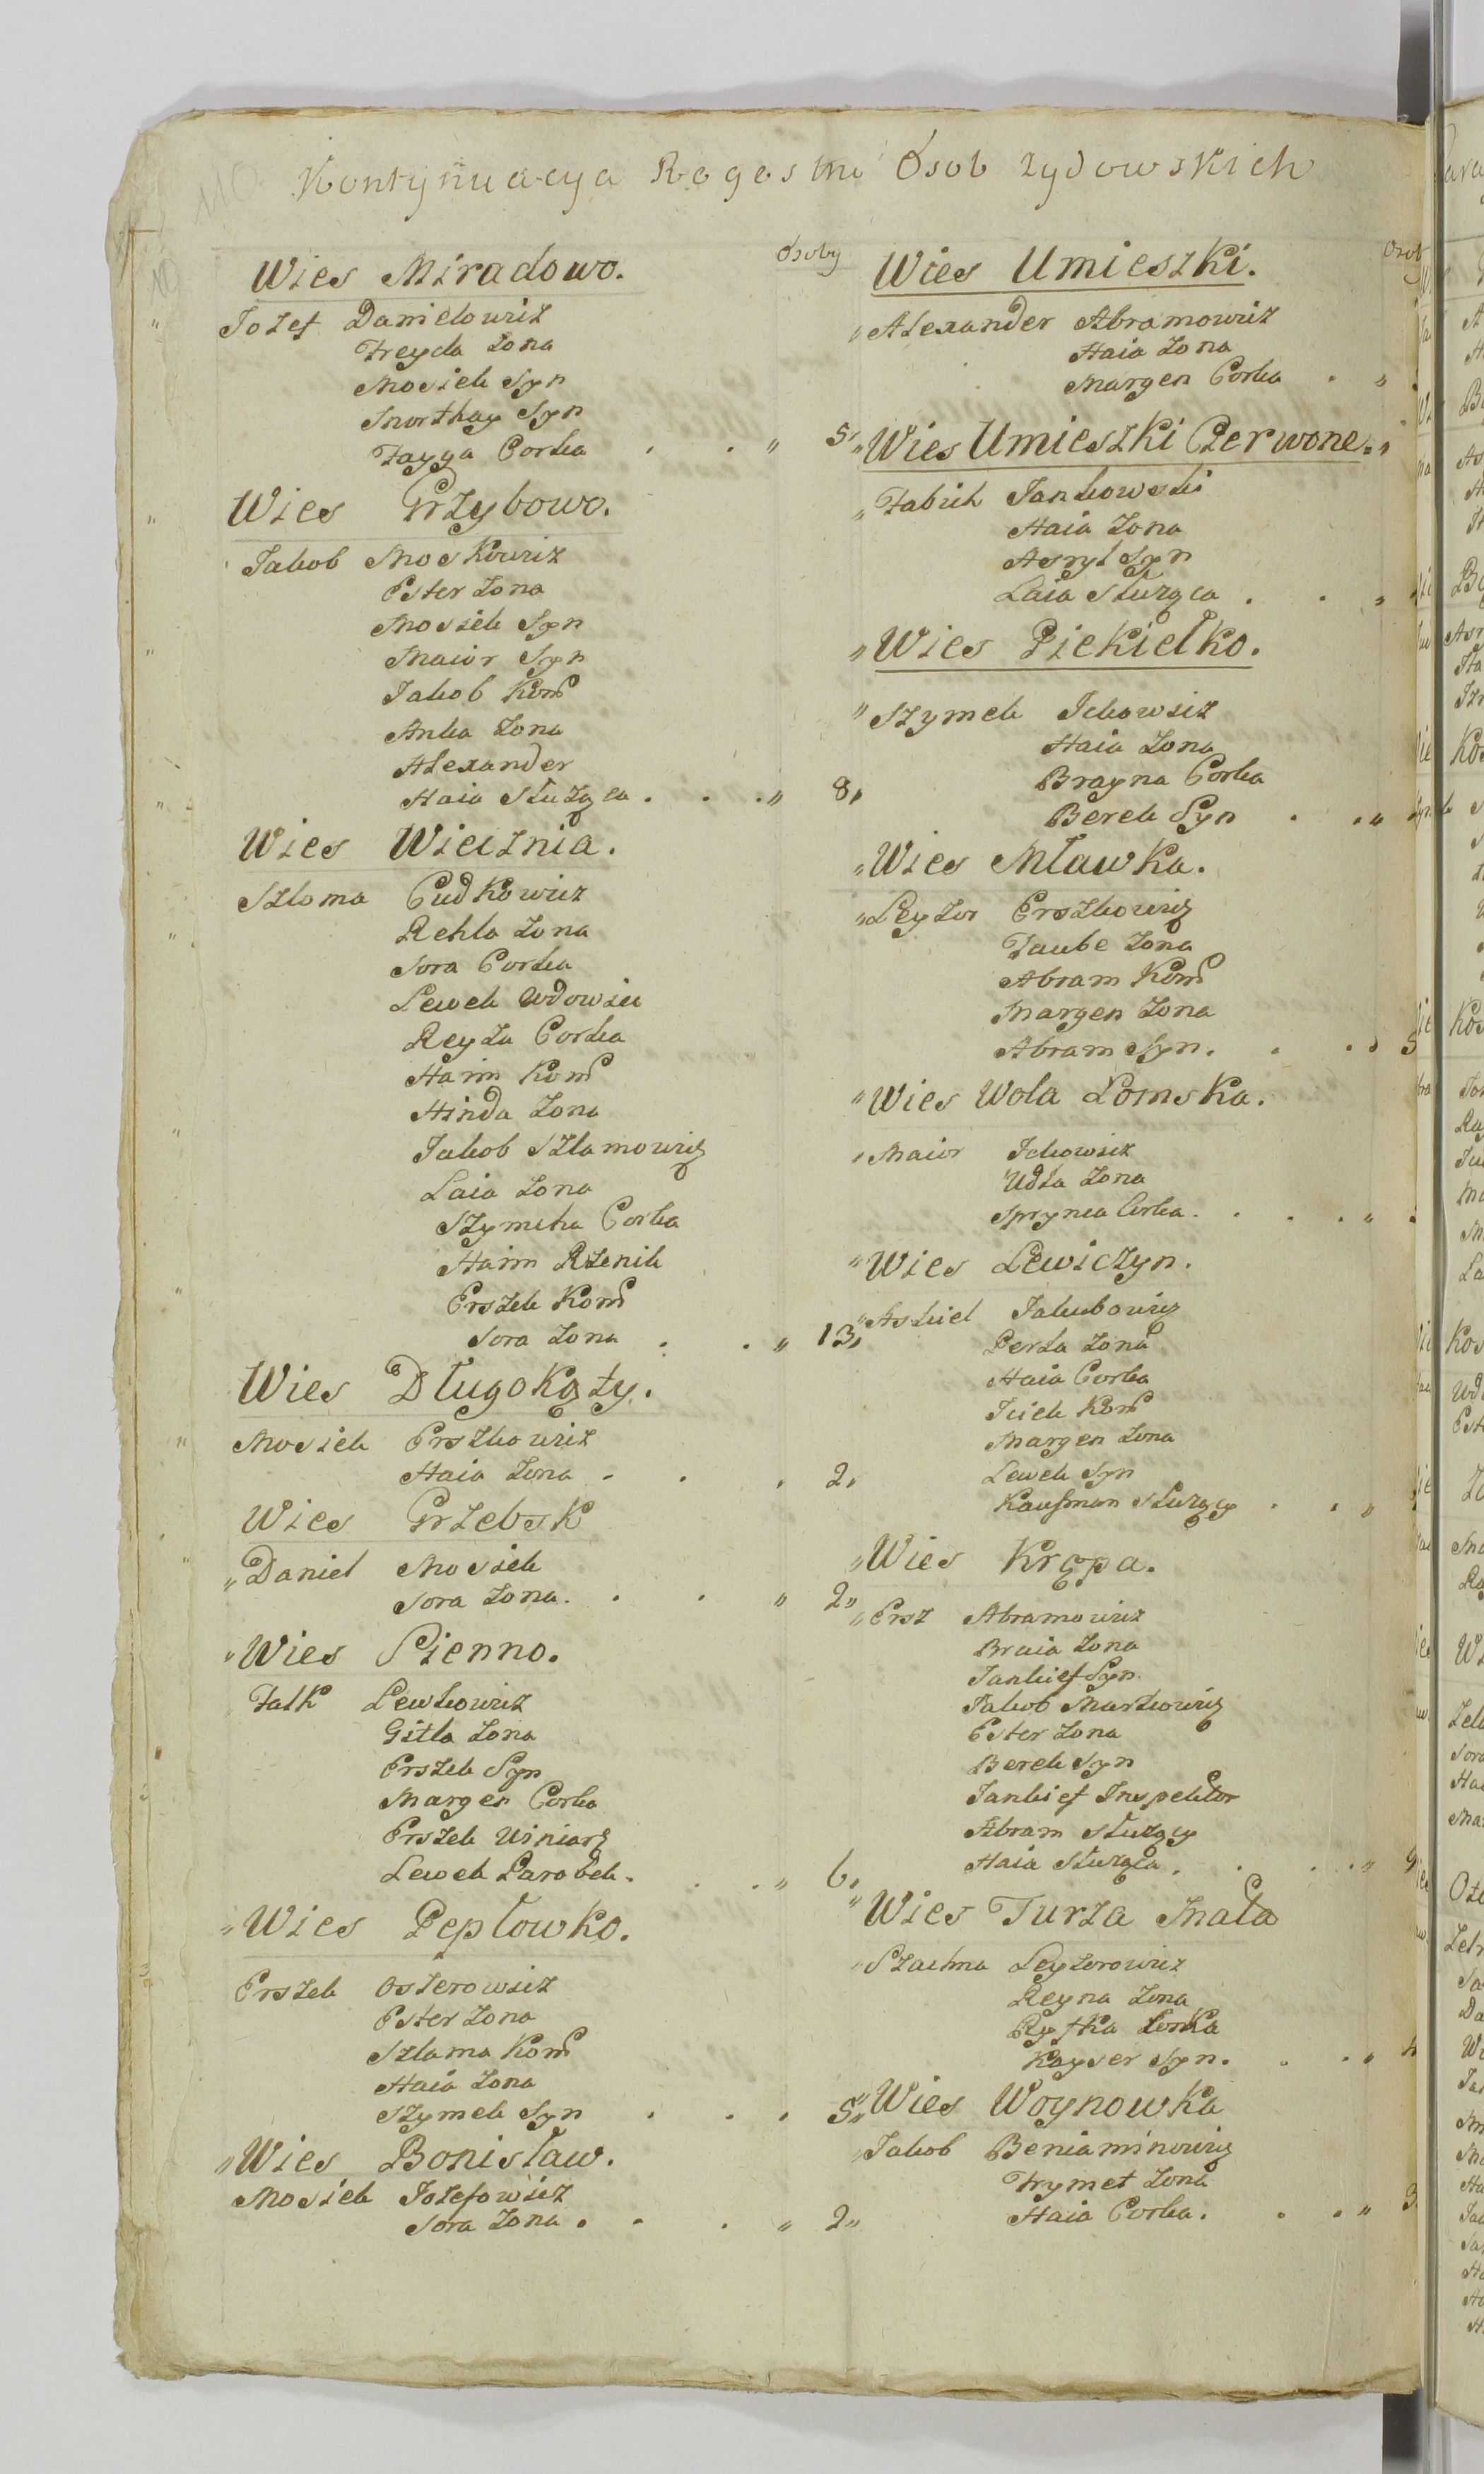 Kontynuacya Regestru Osob Zydowskich
Osoby
Wies Miradowo.
Jozef Danielowicz
Freyda Zona
Mosiek Syn
Morthay Syn
Fayga Corka . . " 5,
Wies Grzybowo.
Jakob Moskowicz
Ester Zona
Mosiek Syn
Maior Syn
Jakob Kom
Anka Zona
Alexander
Haia Służąca . . " 8,
Wies Wiecznia.
Szloma Cudkowicz
Rehla Zona
Sora Corka
Lewek Wdowiec
Reyza Corka
Haim Kom
Hinda Zona
Jakob Szlamowicz
Laia Zona
Szymcha Corka
Haim Rzenik
Erszek Kom
Sora Zona . . " 13,
Wies Długokąty.
Mosiek Erszkowicz
Haia Zona . . . 2,
Wies Grzebsk
"Daniel Mosiek
Sora Zona . . " 2"
"Wies Pienno.
Falk Lewkowicz
Gitla Zona
Erszek Syn
Margen Corka
Erszek Winiarz
Lewek Parobek . . . " 6,
"Wies Peplowko.
Erszek Oszerowicz
Ester Zona
Szlama Kom
Haia Zona
Szymek Syn . . . 5"
"Wies Bonisław.
Mosiek Jozefowicz
Sora Zona . . . " 2"
Osob
Wies Umieszki.
"Alexander Abramowicz
Haia Zona
Margen Corka . "
"Wies Umieszki Czerwone.
"Fabich Jankowski
Haia Zona
Asryl Syn
Laia Służąca . . "
"Wies Piekiełko.
"Szymek Ickowicz
Haia Zona
Brayna Corka
Berek Syn . . "
"Wies Mławka.
"Leyzor Erszkowicz
Taube Zona
Abram Kom
Margen Zona
Abram Syn . . . 5
"Wies Wola Łomska.
"Maior Ickowicz
Udla Zona
Sprynca Corka . . . "
"Wies Lewiczyn.
"Askiel Jakubowicz
Perla Zona
Haia Corka
Jciek Kom
Margen Zona
Lewek Syn
Kaufman Służący . . "
"Wies Krępa.
"Ersz Abramowicz
Braia Zona
Jankief Syn
Jakob Markowicz
Ester Zona
Berek Syn
Jankief Inspektor
Abram Służący
Haia Służąca . . . " 9
"Wies Turza Mała
"Szachma Leyzorowicz
Reyna Zona
Kayser Syn . . . " 4
"Wies Woynowka
"Jakob Beniaminowicz
Frymet Zona
Haia Corka . . . " 3